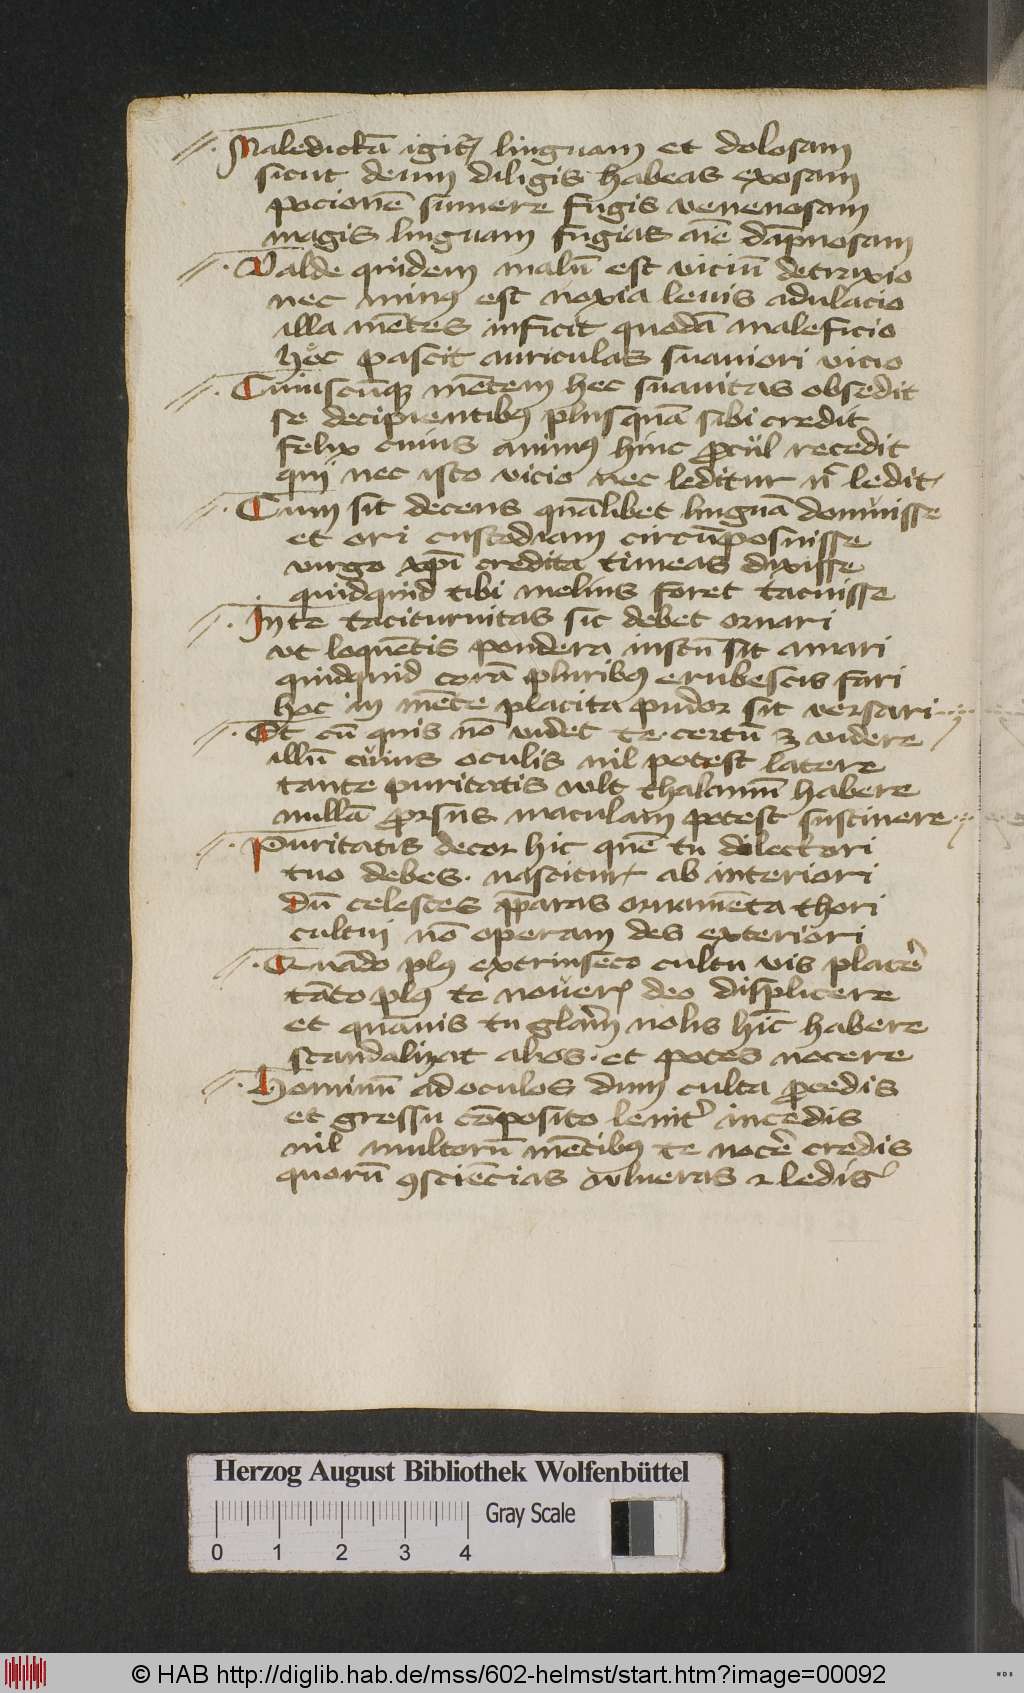 Maledictā igitᷣ linguam et dolosam
sicut deum diligis habeas exosam
pocionē sumere fugis venenosam
magis linguam fugias aīe dāpnosam
Valde quidem malū est viciū detrixio
nec minꝰ est noxia leuis adulacio
illa mētes inficit quodā maleficio
hec pascit auriculas suauiori vicio
Cuiuscūqꝫ mētem hec suauitas obsedit
se decipientibꝫ plus quā sibi credit
felix cuius animꝰ hinc ꝓcul recedit
qui nec isto vicio nec leditur nᷣ ledit
Cum sit decens quālibet linguā domuisse
et ori custodiam circūposuisse
virgo xp̄i credita timeas dixisse
quidquid tibi melius foret tacuisse
In te taciturnitas sic debet ornari
vt loquētis pondera iustū sit amari
quidquid corā pluribꝫ erubescis fari
hoc in mēte placita pudor sit versari
Et cū quis nō videt te certū ꝫ videre
illū cuius oculis nil potest latere
tante puritatis vult thalamū habere
nullā ꝓrsus maculam potest sustinere
Puritatis decor hic quē tu dilectori
tuo debes. nascitur ab interiori
Dū celestes p̄paras ornamēta thori
cultui nō operam des exteriori
Quādo plꝰ extrinseco cultu vis placēr
tāto plꝰ te nouerꝭ deo displicere
et quāuis tu gl̄am nolis hīc habere
scandalizat alios. et potes nocere
Hominū ad oculos dum culta ꝓcedis
et gressu cōposito lenitᷣ incedis
nil multorū mētibꝫ te nocēr credis
quorū ꝯsciēcias vulneras ⁊ ledis
Herzog August Bibliothek Wolfenbüttel
0 1 2 3 4
Gray Scale
© HAB http://diglib.hab.de/mss/602-helmst/start.htm?image=00092